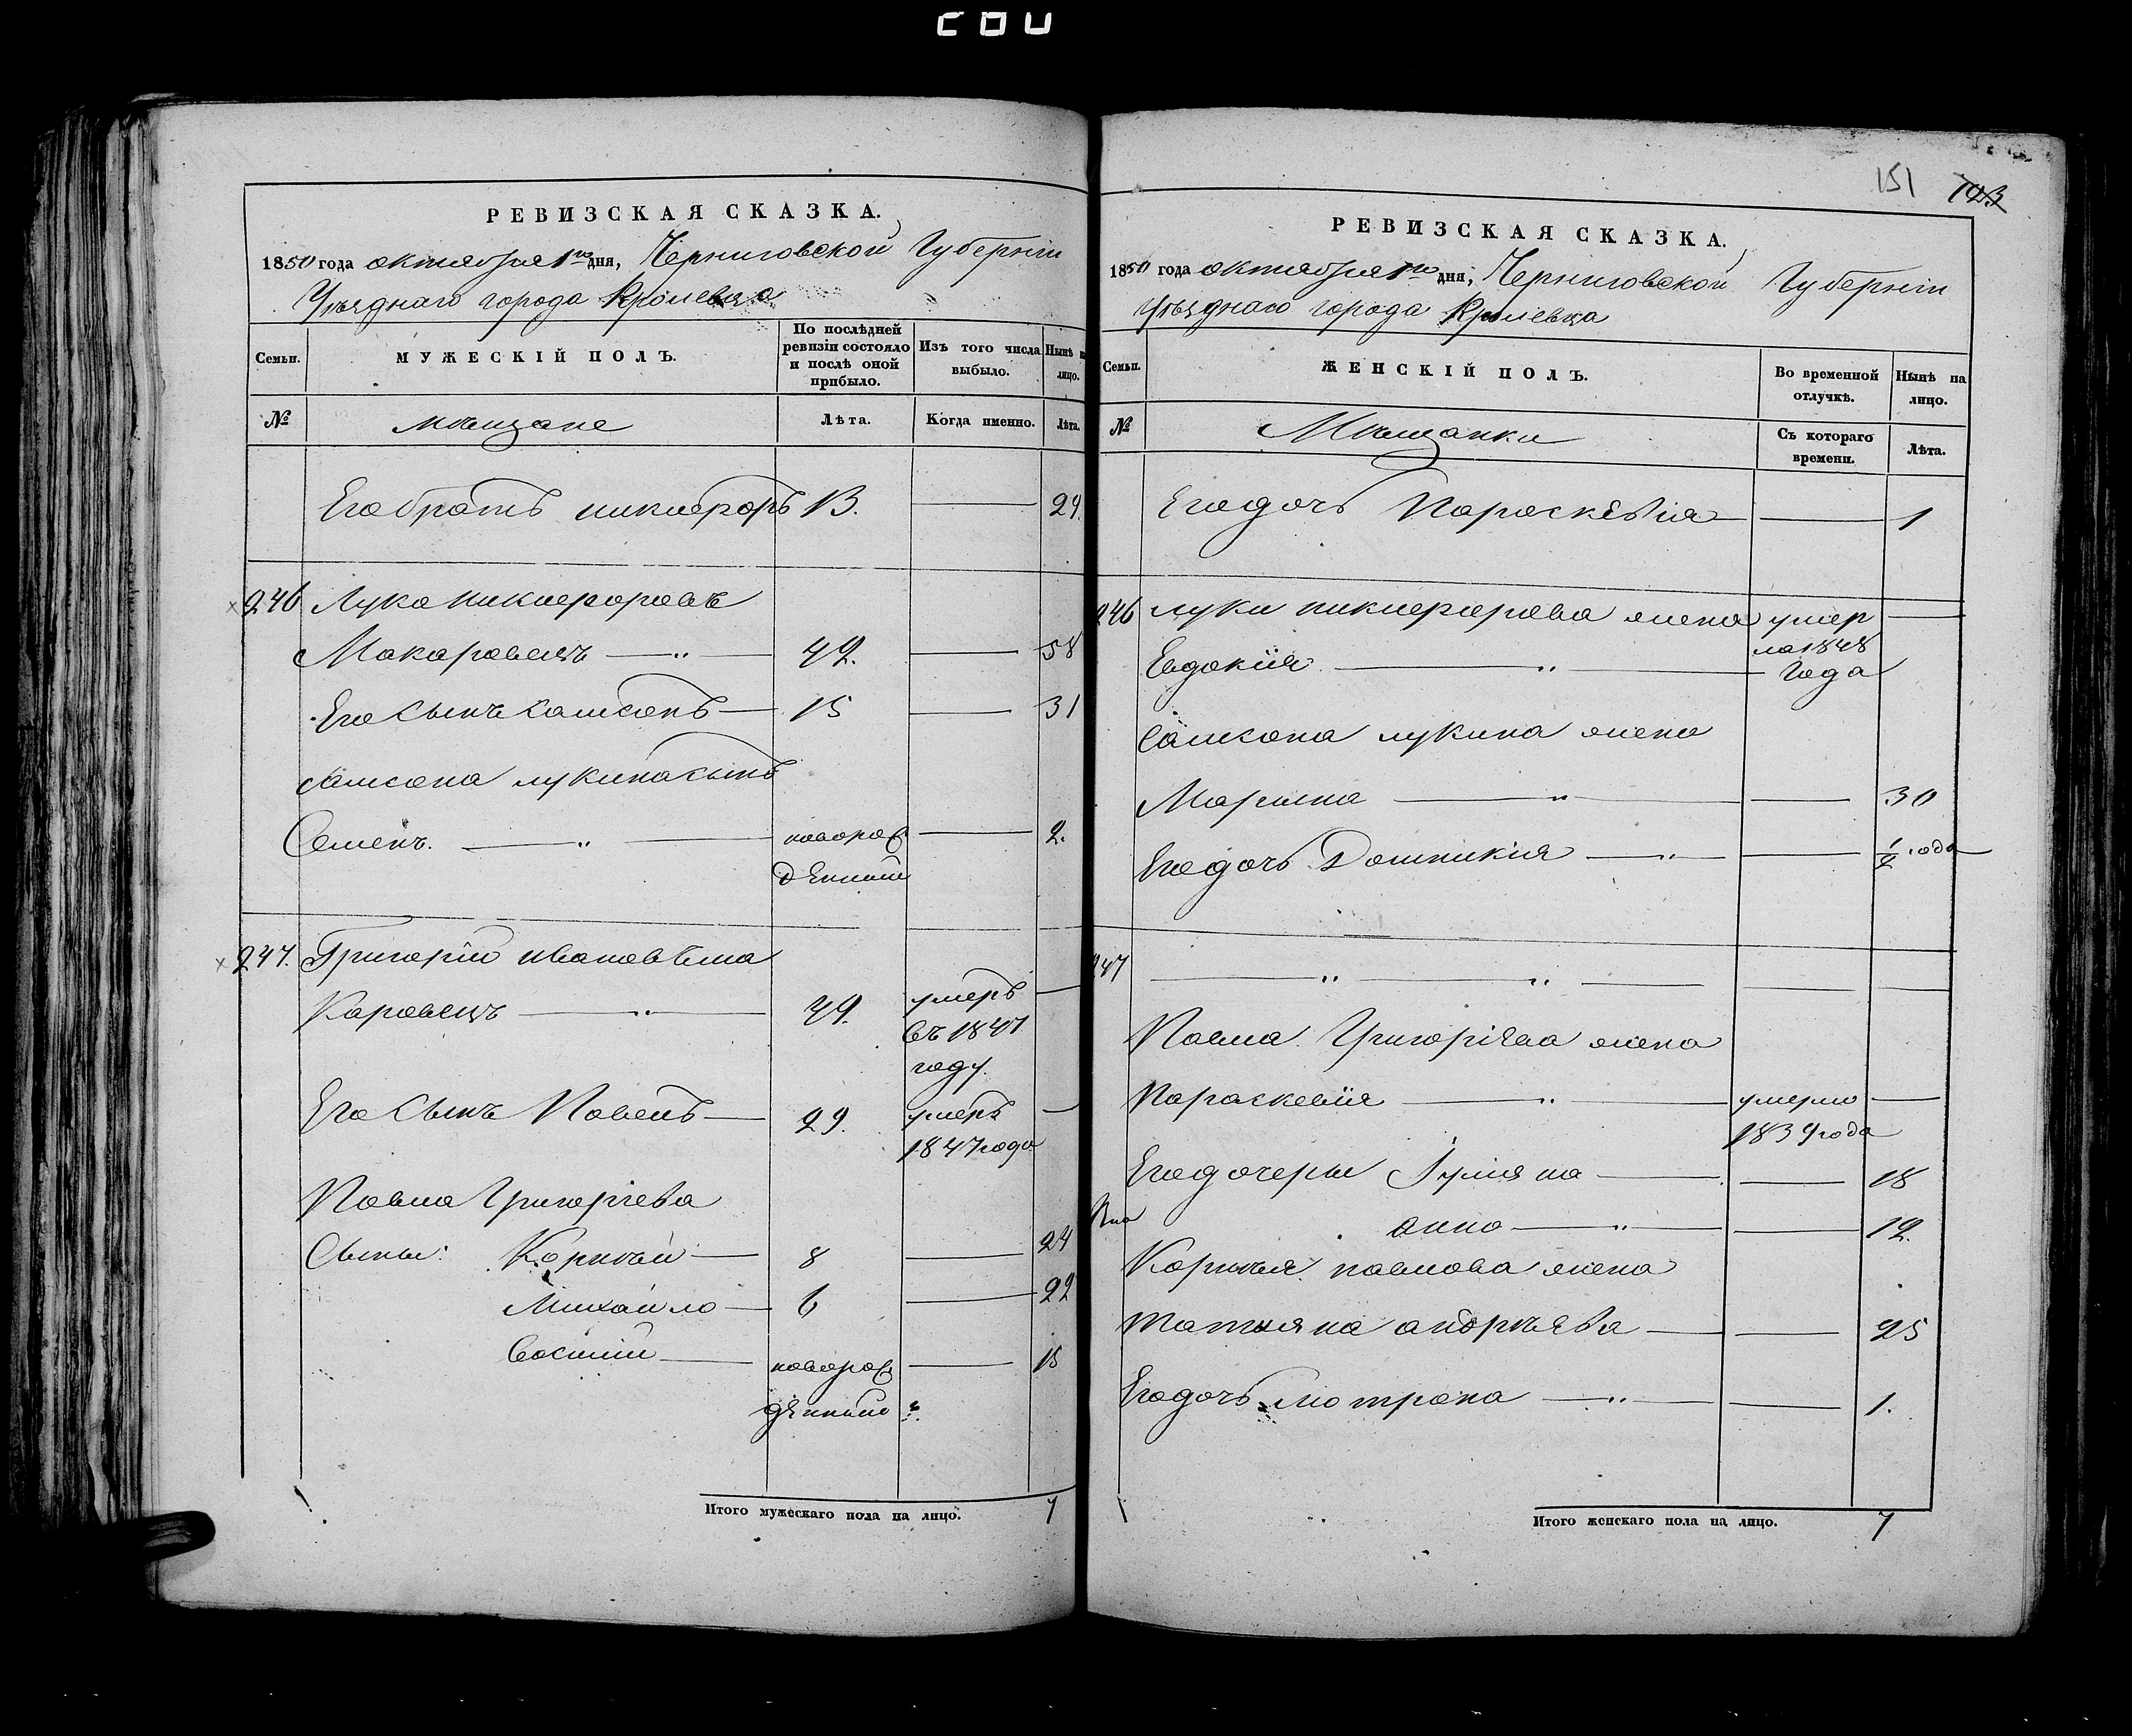 РЕВИЗСКАЯ СКАЗКА.
1850 года октября 1го дня, Черниговской Губерніи
Уѣзднаго города Кролевца
Семьи.
МУЖЕСКІЙ ПОЛЪ.
По послѣдней ревизіи состояло и послѣ оной прибыло.
Изъ того числа выбыло.
Нынѣ на лицо.
№
мѣщане
Лѣта.
Когда именно.
Лѣта.
Его братъ никифоръ 13. 29.
246 Лука никифоровъ
Макаровецъ 42. 58
Его Сынъ Самсонъ 15 31
Самсона лукина сынъ
Семенъ. новорож 2.
денный
247. Григорій ивановъ Ма
Каровецъ 49. умеръ
въ 1847
году.
Его Сынъ Павелъ 29. умеръ
1847 года
Павла Григоріева
Сыны: Корнѣй 8 24
Михайло 6 22
Василій новорож 15
денный
Итого мужескаго пола на лицо. 7
151 123
РЕВИЗСКАЯ СКАЗКА.
1850 года октября 1го дня, Черниговской Губерніи
Уѣзднаго города Кролевца
Семьи.
ЖЕНСКІЙ ПОЛЪ.
Во временной отлучкѣ.
Нынѣ на лицо.
№
Мѣщанки
Съ котораго времени.
Лѣта.
Его дочь Параскевія 1
246 луки никифорова жена умер
Евдокія ла 1848
года
Самсона лукина жена
Марина 30
Его дочь Домникія 1/2 года
247
Павла Григоріева жена
Параскевія умерла
1839 года
Его дочеры Іуліяна 18
анна 12
Корнѣя павлова жена
татіяна андрѣева 25
Его дочь Мотрона 1.
Итого женскаго пола на лицо. 7